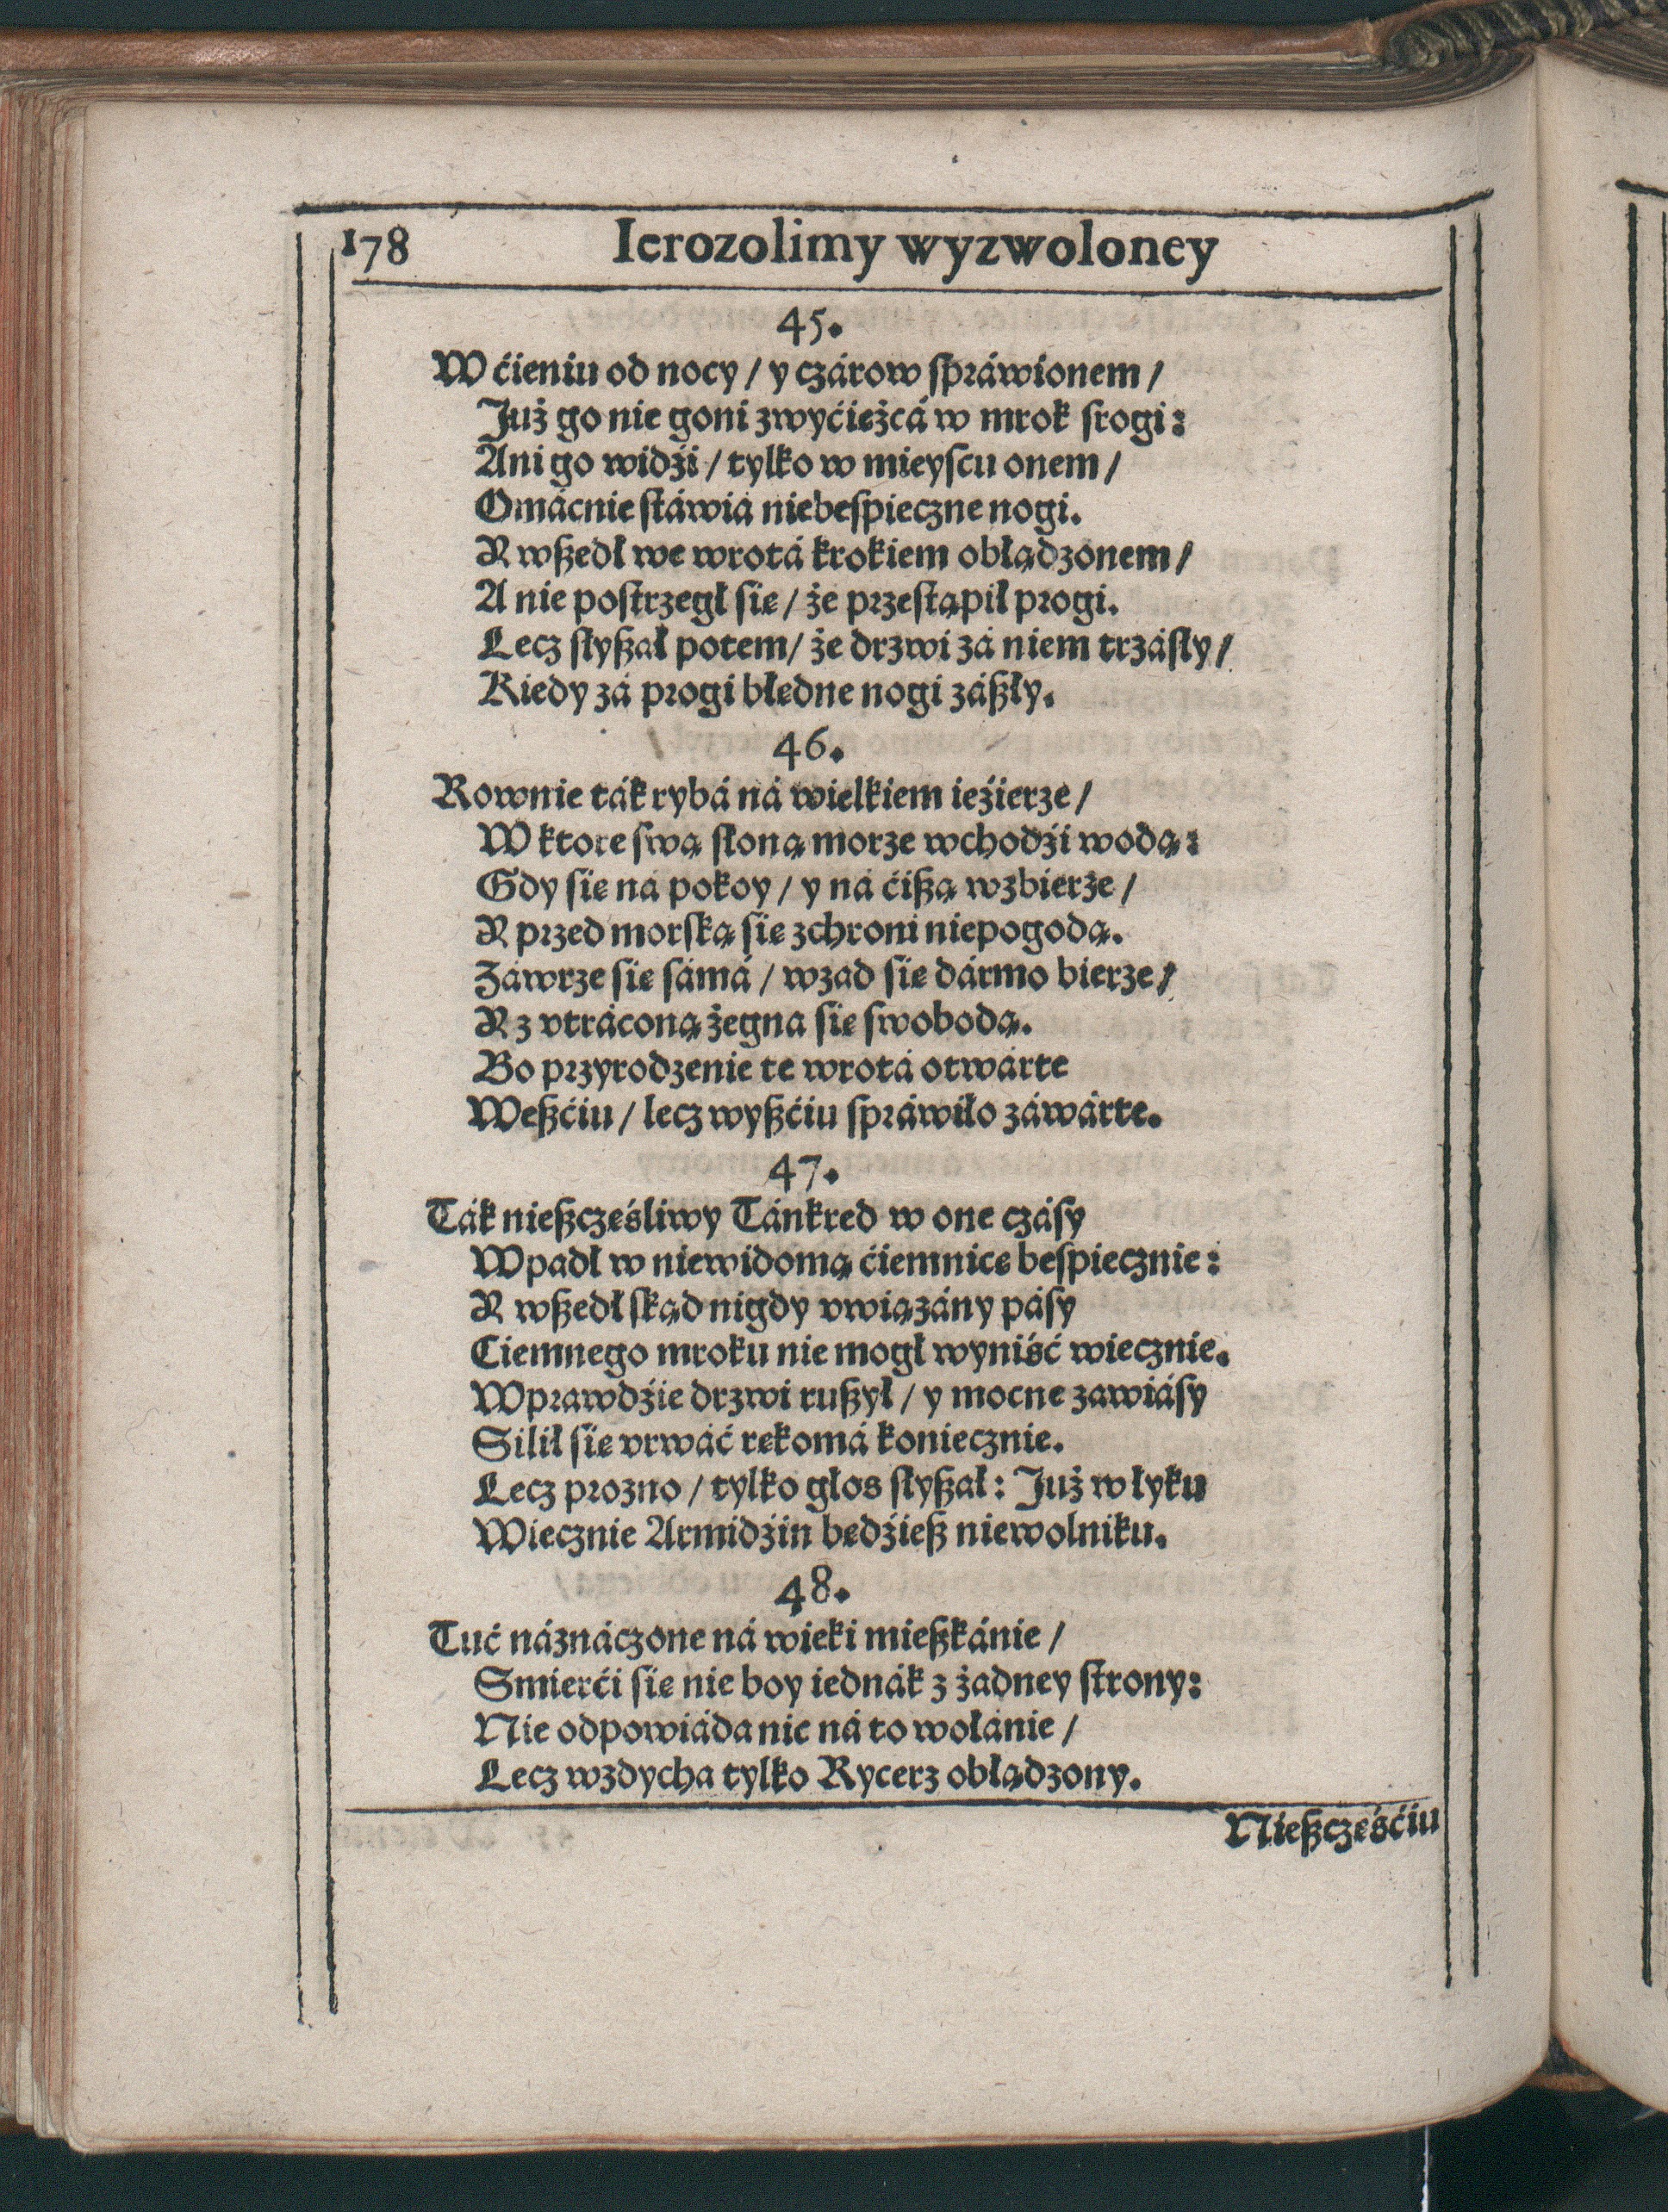 178 Ierozolimy wyzwoloney
45.
W ćieniu od nocy / y czárow spráwionem /
Już go nie goni zwyćięzcá w mrok srogi:
Ani go widźi / tylko w mieyscu onem /
Omácnie stáwia niebespieczne nogi.
Y wszedł we wrotá krokiem obłądzonem /
A nie postrzegł się / że przestąpił progi.
Lecz słyszał potem / że drzwi zá niem trzásły /
Kiedy zá progi błędne nogi zászły.
46.
Rownie ták rybá ná wielkiem ieźierze /
W ktore swą słoną morze wchodźi wodą:
Gdy się ná pokoy / y ná ćiszą wzbierze /
Y przed morską się zchroni niepogodą.
Záwrze się sámá / wzad się dármo bierze /
Y z vtráconą żegna się swobodą.
Bo przyrodzenie te wrotá otwárte
Weszćiu / lecz wyszćiu spráwiło záwárte.
47.
Ták nieszczęśliwy Tánkred w one czásy
Wpadł w niewidomą ćiemnicę bespiecznie:
Y wszedł skąd nigdy vwiązány pásy
Ciemnego mroku nie mogł wyniść wiecznie.
Wprawdźie drzwi ruszył / y mocne zawiásy
Silił się vrwáć rękomá koniecznie.
Lecz prozno / tylko głos słyszał: Już w łyku
Wiecznie Armidźin będźiesz niewolniku.
48.
Tuć náznáczone ná wieki mieszkánie /
Smierći się nie boy iednák z żadney strony:
Nie odpowiáda nic ná to wołánie /
Lecz wzdycha tylko Rycerz obłądzony.
Nieszczęśćiu